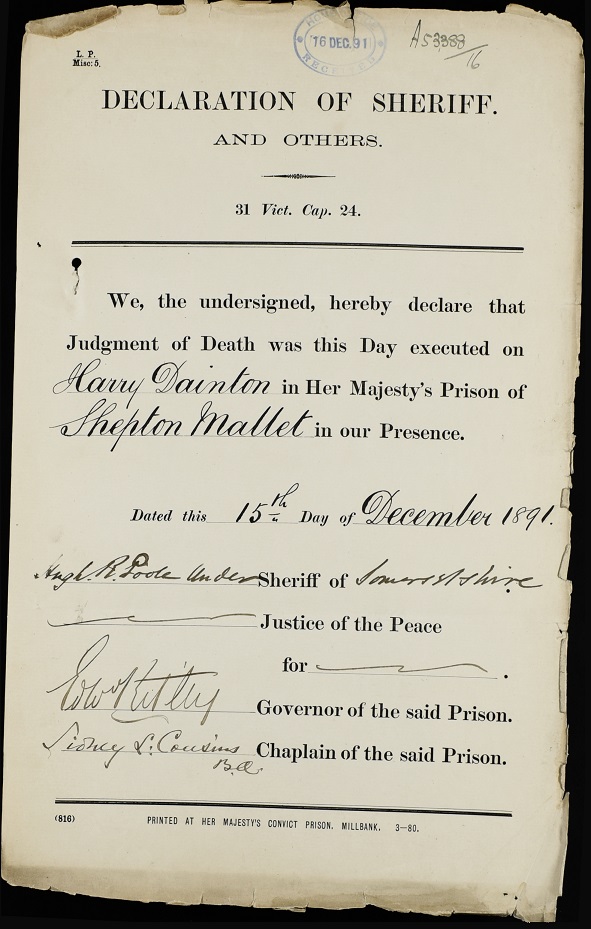 L. P.
Misc: 5.
16 DEC. 91
RECEIVED
A53388/16
DECLARATION OF SHERIFF.
AND OTHERS.
31 Vict. Cap. 24.
We, the undersigned, hereby declare that
Judgment of Death was this Day executed on
Harry Dainton in Her Majesty's Prison of
Shepton Mallet in our Presence.
Dated this 15th Day of December 1891.
Hugh R. Poole Under Sheriff of Somersetshire
Justice of the Peace
for .
Governor of the said Prison.
Sidney L. Cousins Chaplain of the said Prison.
B.A.
(816) PRINTED AT HER MAJESTY'S CONVICT PRISON, MILLBANK. 3—80.